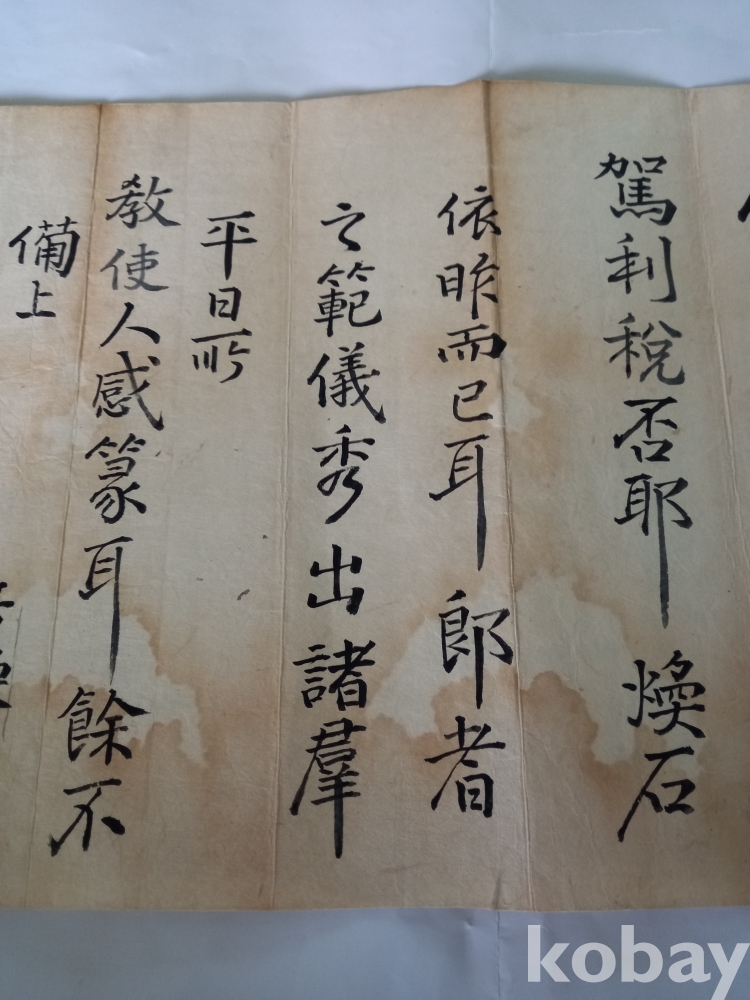 駕利稅否耶 煥石
依昨而已耳 郎者
之範儀秀出諸羣
平日所
敎使人感篆耳餘不
備上
kobay